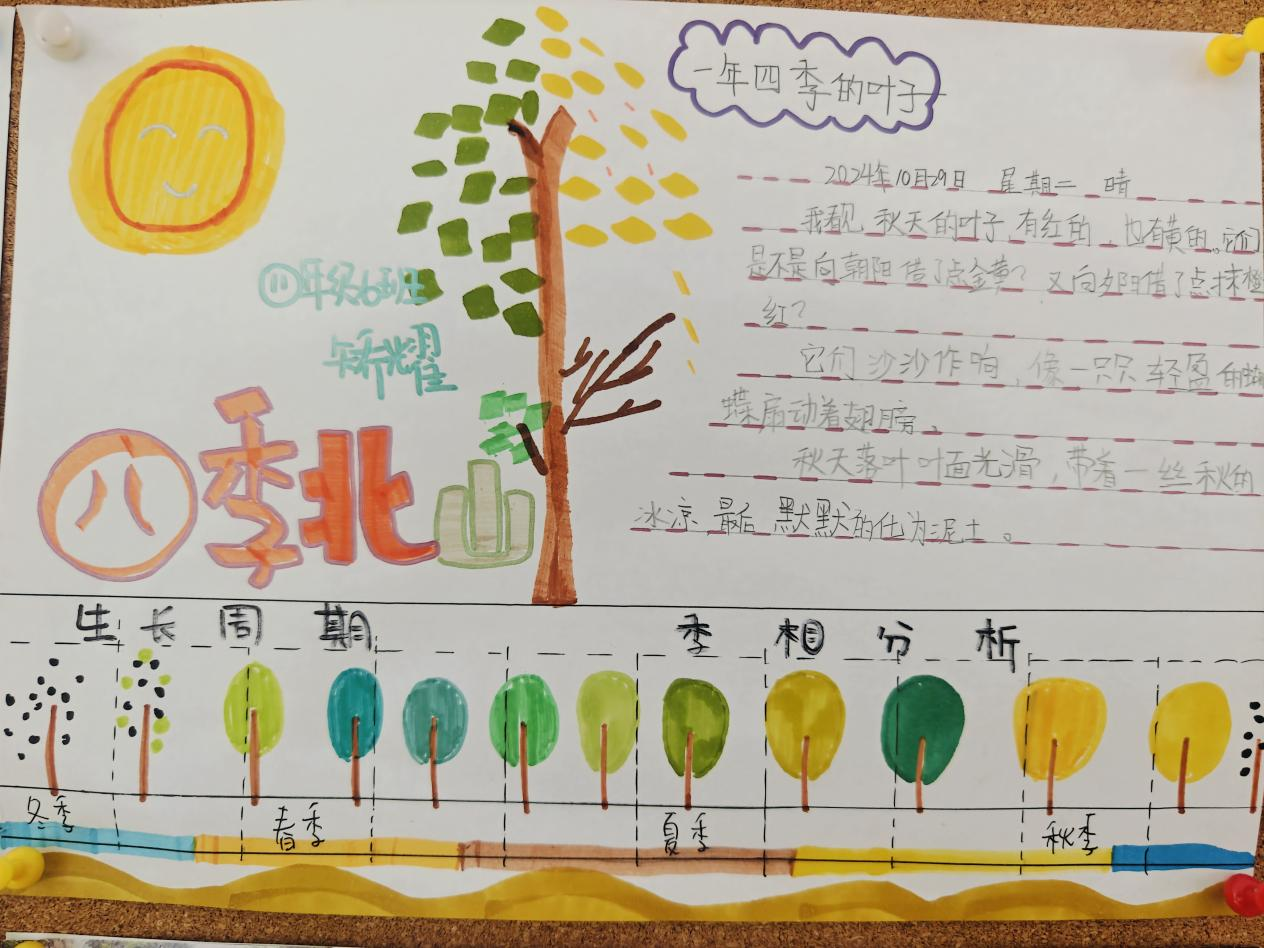 一年四季的叶子
2024年10月29日 星期二 晴
我看见秋天的叶子有红的，也有黄的。它们
是不是向朝阳借了点金黄？又向夕阳借了点抹橙
红？
它们沙沙作响，像一只只轻盈的蝴
蝶扇动着翅膀。
秋天落叶叶面光滑，带着一丝秋的
冰凉 最后 默默的化为泥土。
八年级6班
矫耀
八季北山
生长周期 季相分析
冬季 春季 夏季 秋季